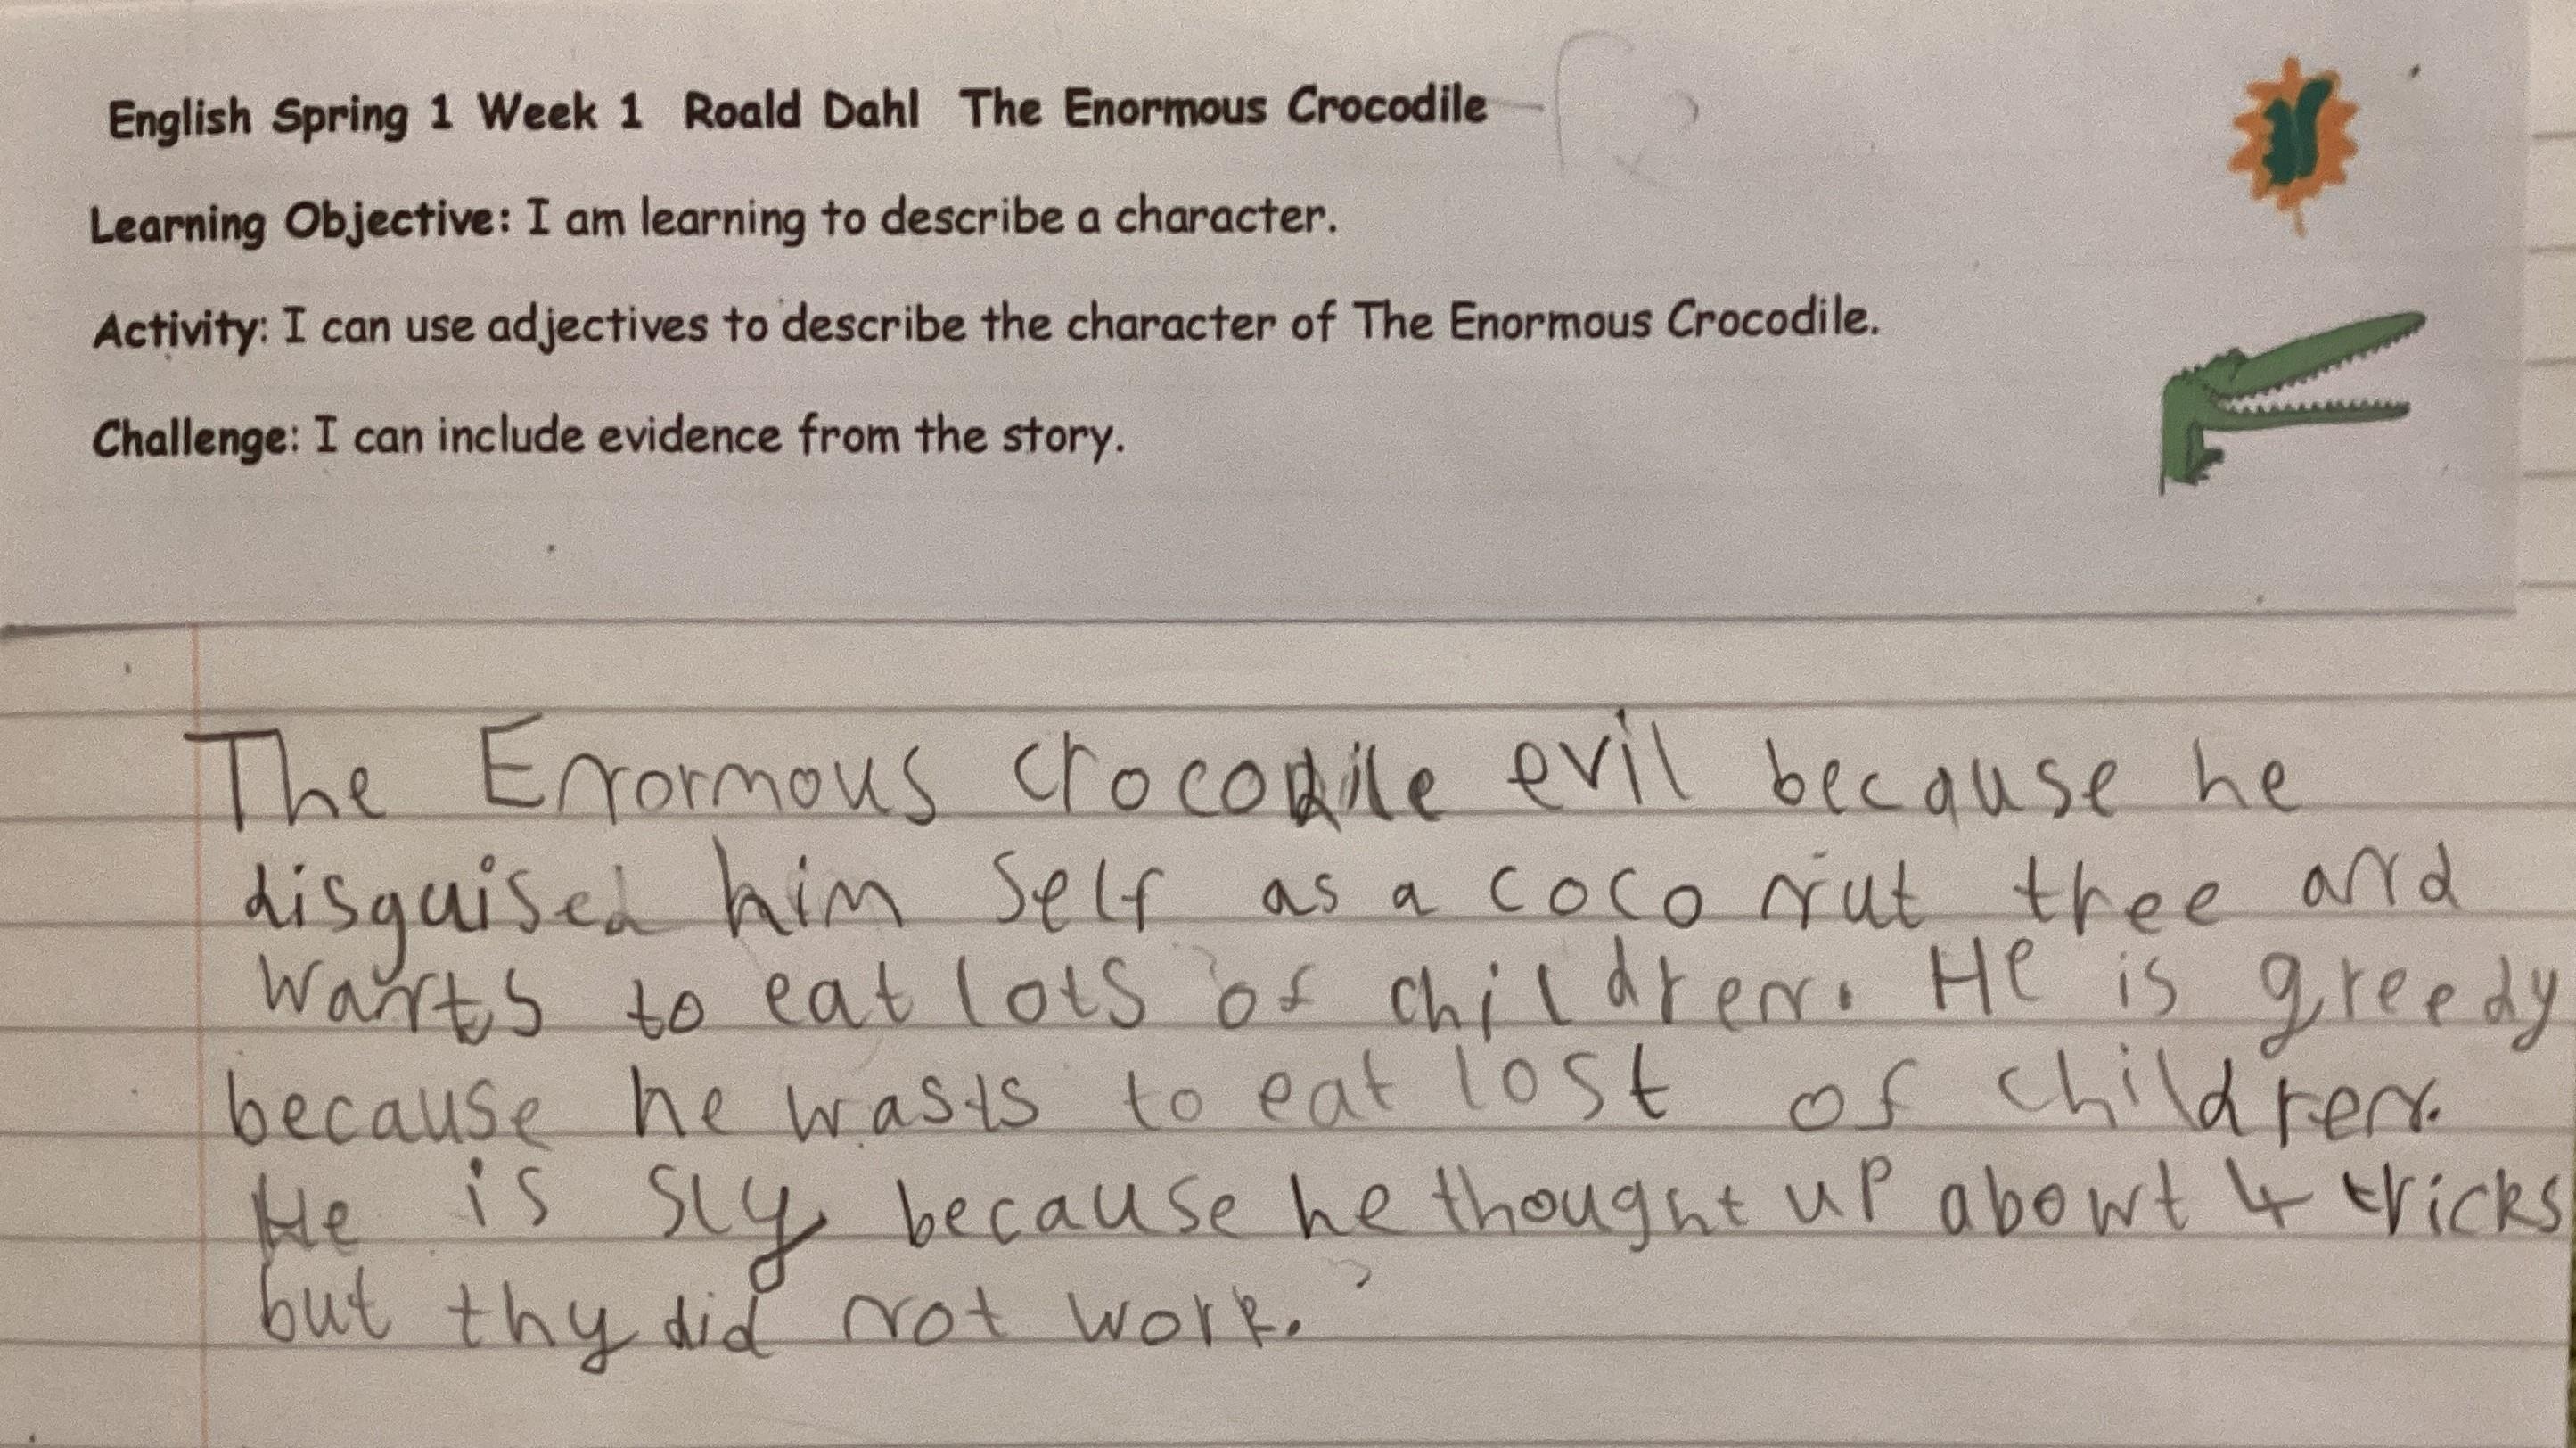 English Spring 1 Week 1 Roald Dahl The Enormous Crocodile
Learning Objective: I am learning to describe a character.
Activity: I can use adjectives to describe the character of The Enormous Crocodile.
Challenge: I can include evidence from the story.
The Enormous crocodile evil because he
disguised him self as a coco nut tree and
wants to eat lots of children. He is greedy
because he wasts to eat lost of children.
He is sly because he thought up abowt 4 tricks
but thy did not work.